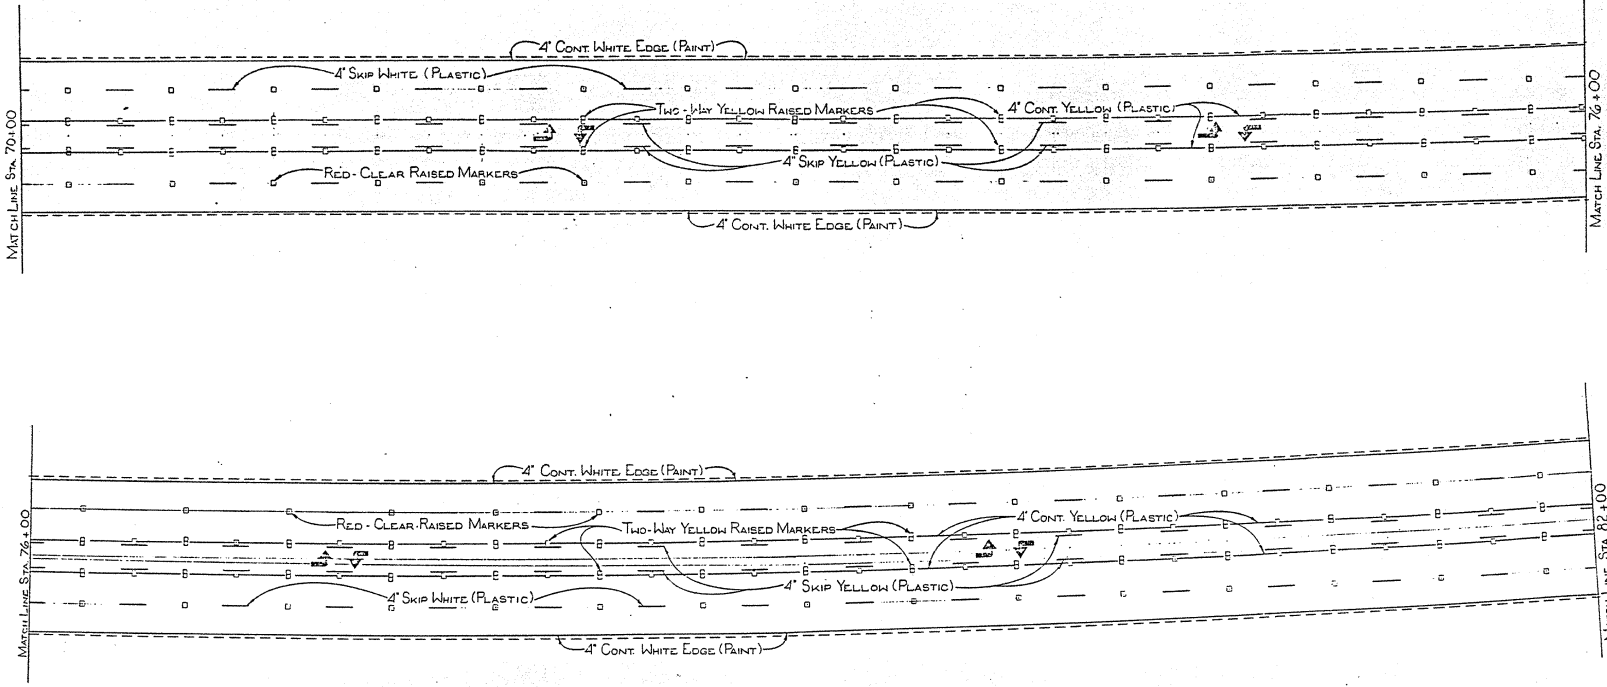 4" CONT. WHITE EDGE (PAINT)
4" SKIP WHITE (PLASTIC)
TWO-WAY YELLOW RAISED MARKERS
4" CONT. YELLOW (PLASTIC)
4" SKIP YELLOW (PLASTIC)
RED-CLEAR RAISED MARKERS
4" CONT. WHITE EDGE (PAINT)
MATCH LINE STA. 70+00
MATCH LINE STA. 76+00
4" CONT. WHITE EDGE (PAINT)
RED-CLEAR RAISED MARKERS
TWO-WAY YELLOW RAISED MARKERS
4" CONT. YELLOW (PLASTIC)
4" SKIP YELLOW (PLASTIC)
4" SKIP WHITE (PLASTIC)
4" CONT. WHITE EDGE (PAINT)
MATCH LINE STA. 76+00
LINE STA. 82+00